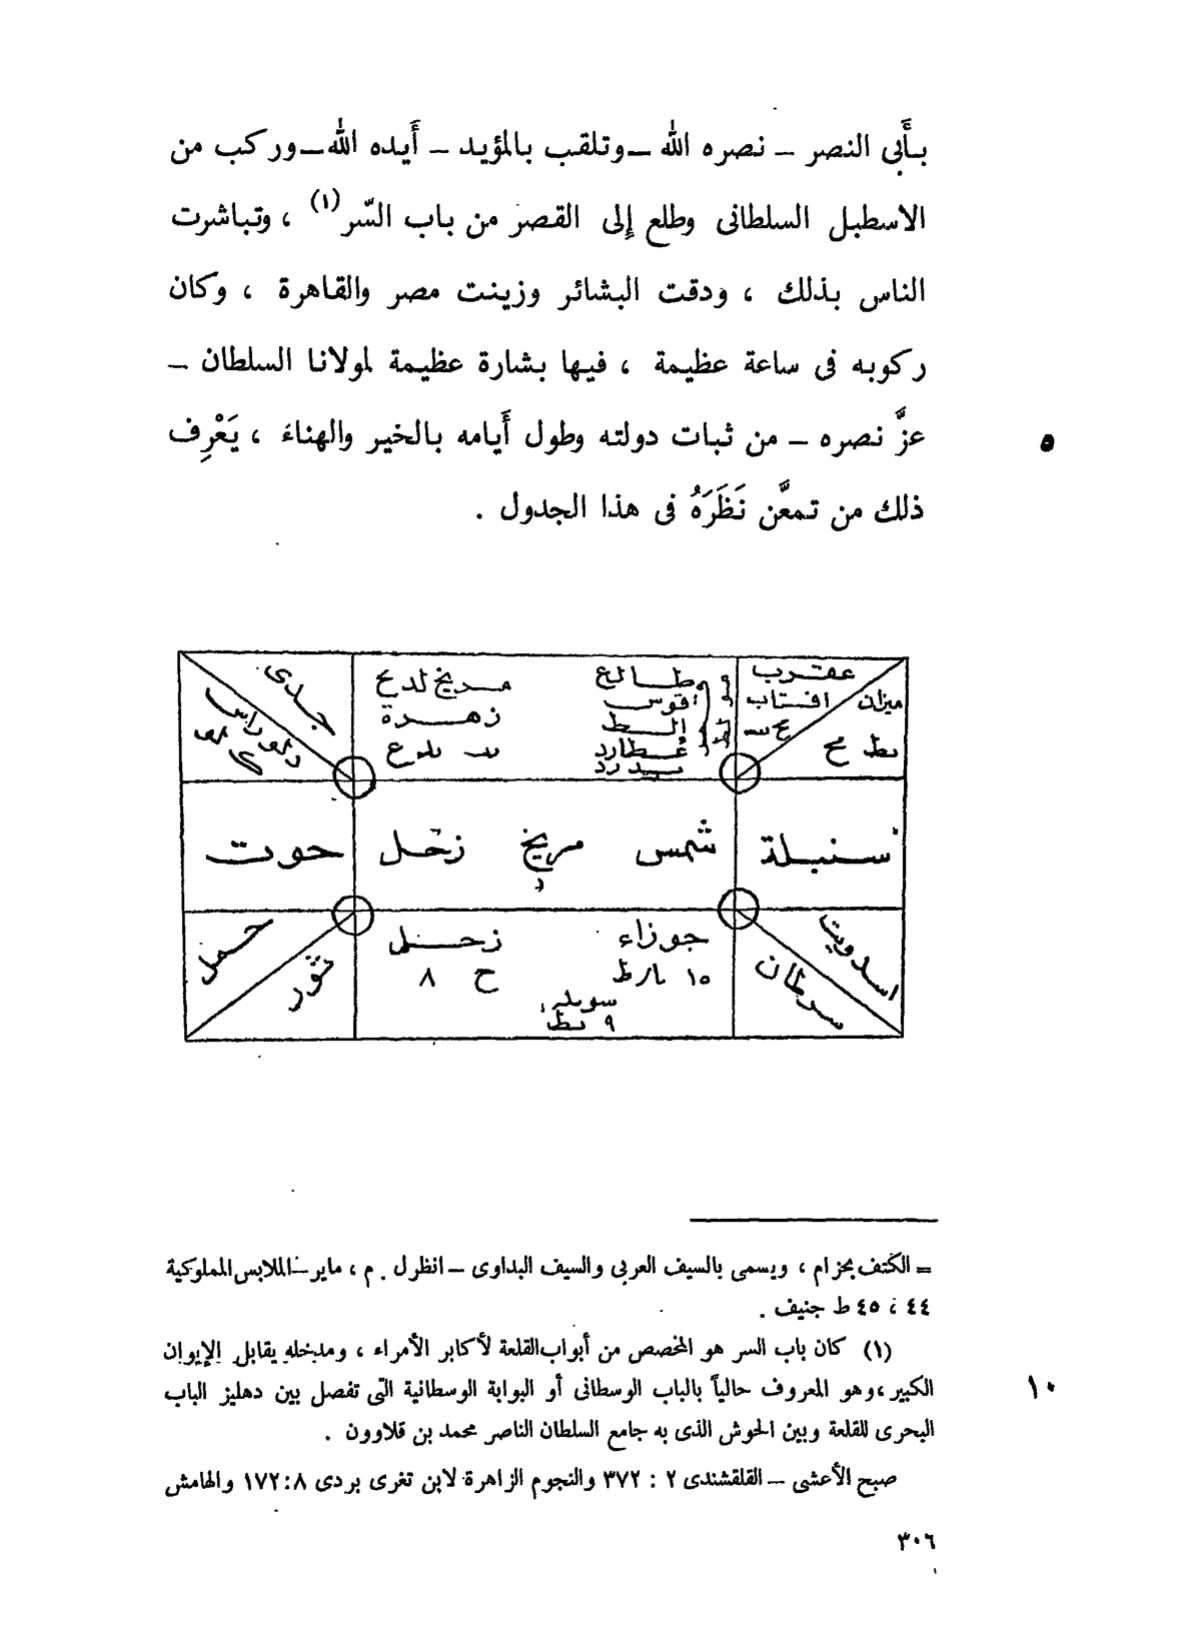 بأبى النصر – نصره الله – وتلقب بالمؤيد – أيده الله – وركب من
الاسطبل السلطانى وطلع إلى القصر من باب السّر (١) ، وتباشرت
الناس بذلك ، ودقت البشائر وزينت مصر والقاهرة ، وكان
ركوبه فى ساعة عظيمة ، فيها بشارة عظيمة لمولانا السلطان –
عزَّ نصره – من ثبات دولته وطول أَيامه بالخير والهناءَ ، يَعْرِف
٥
ذلك من تمعَّن نَظَرَهُ فى هذا الجدول .
عقرب
افتاب
ميزان
طالع
قوس
عطارد
مريخ لدع
زهرة
جدى
سنبلة
شمس مريخ زحل
د
حوت
اسد
سرطان
جوزاء
١٥
٩
زحل
ح ٨
ثور
حمل
= الكتف بحزام ، ويسمى بالسيف العربى والسيف البداوى – انظر ل . م ، ماير – الملابس المملوكية
٤٤ ، ٤٥ ط جنيف .
(١) كان باب السر هو المخصص من أبواب القلعة لأكابر الأمراء ، ومدخله يقابل الإيوان
الكبير ، وهو المعروف حالياً بالباب الوسطانى أو البوابة الوسطانية التى تفصل بين دهليز الباب
١٠
البحرى للقلعة وبين الحوش الذى به جامع السلطان الناصر محمد بن قلاوون .
صبح الأعشى – القلقشندى ٢ : ٣٧٢ والنجوم الزاهرة لابن تغرى بردى ٨ : ١٧٢ والهامش
٣٠٦